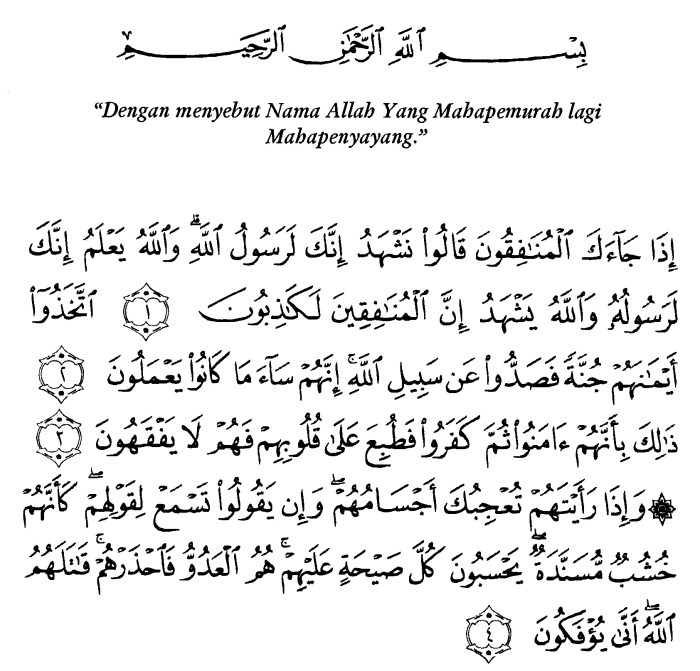 بِسْمِ ٱللَّهِ ٱلرَّحْمَٰنِ ٱلرَّحِيمِ
“Dengan menyebut Nama Allah Yang Mahapemurah lagi
Mahapenyayang.”
إِذَا جَآءَكَ ٱلْمُنَٰفِقُونَ قَالُوا۟ نَشْهَدُ إِنَّكَ لَرَسُولُ ٱللَّهِ ۗ وَٱللَّهُ يَعْلَمُ إِنَّكَ
لَرَسُولُهُۥ وَٱللَّهُ يَشْهَدُ إِنَّ ٱلْمُنَٰفِقِينَ لَكَٰذِبُونَ ١ ٱتَّخَذُوٓا۟
أَيْمَٰنَهُمْ جُنَّةً فَصَدُّوا۟ عَن سَبِيلِ ٱللَّهِ ۚ إِنَّهُمْ سَآءَ مَا كَانُوا۟ يَعْمَلُونَ ٢
ذَٰلِكَ بِأَنَّهُمْ ءَامَنُوا۟ ثُمَّ كَفَرُوا۟ فَطُبِعَ عَلَىٰ قُلُوبِهِمْ فَهُمْ لَا يَفْقَهُونَ ٣
۞ وَإِذَا رَأَيْتَهُمْ تُعْجِبُكَ أَجْسَامُهُمْ ۖ وَإِن يَقُولُوا۟ تَسْمَعْ لِقَوْلِهِمْ ۖ كَأَنَّهُمْ
خُشُبٌ مُّسَنَّدَةٌ ۖ يَحْسَبُونَ كُلَّ صَيْحَةٍ عَلَيْهِمْ ۚ هُمُ ٱلْعَدُوُّ فَٱحْذَرْهُمْ ۚ قَٰتَلَهُمُ
ٱللَّهُ ۖ أَنَّىٰ يُؤْفَكُونَ ٤